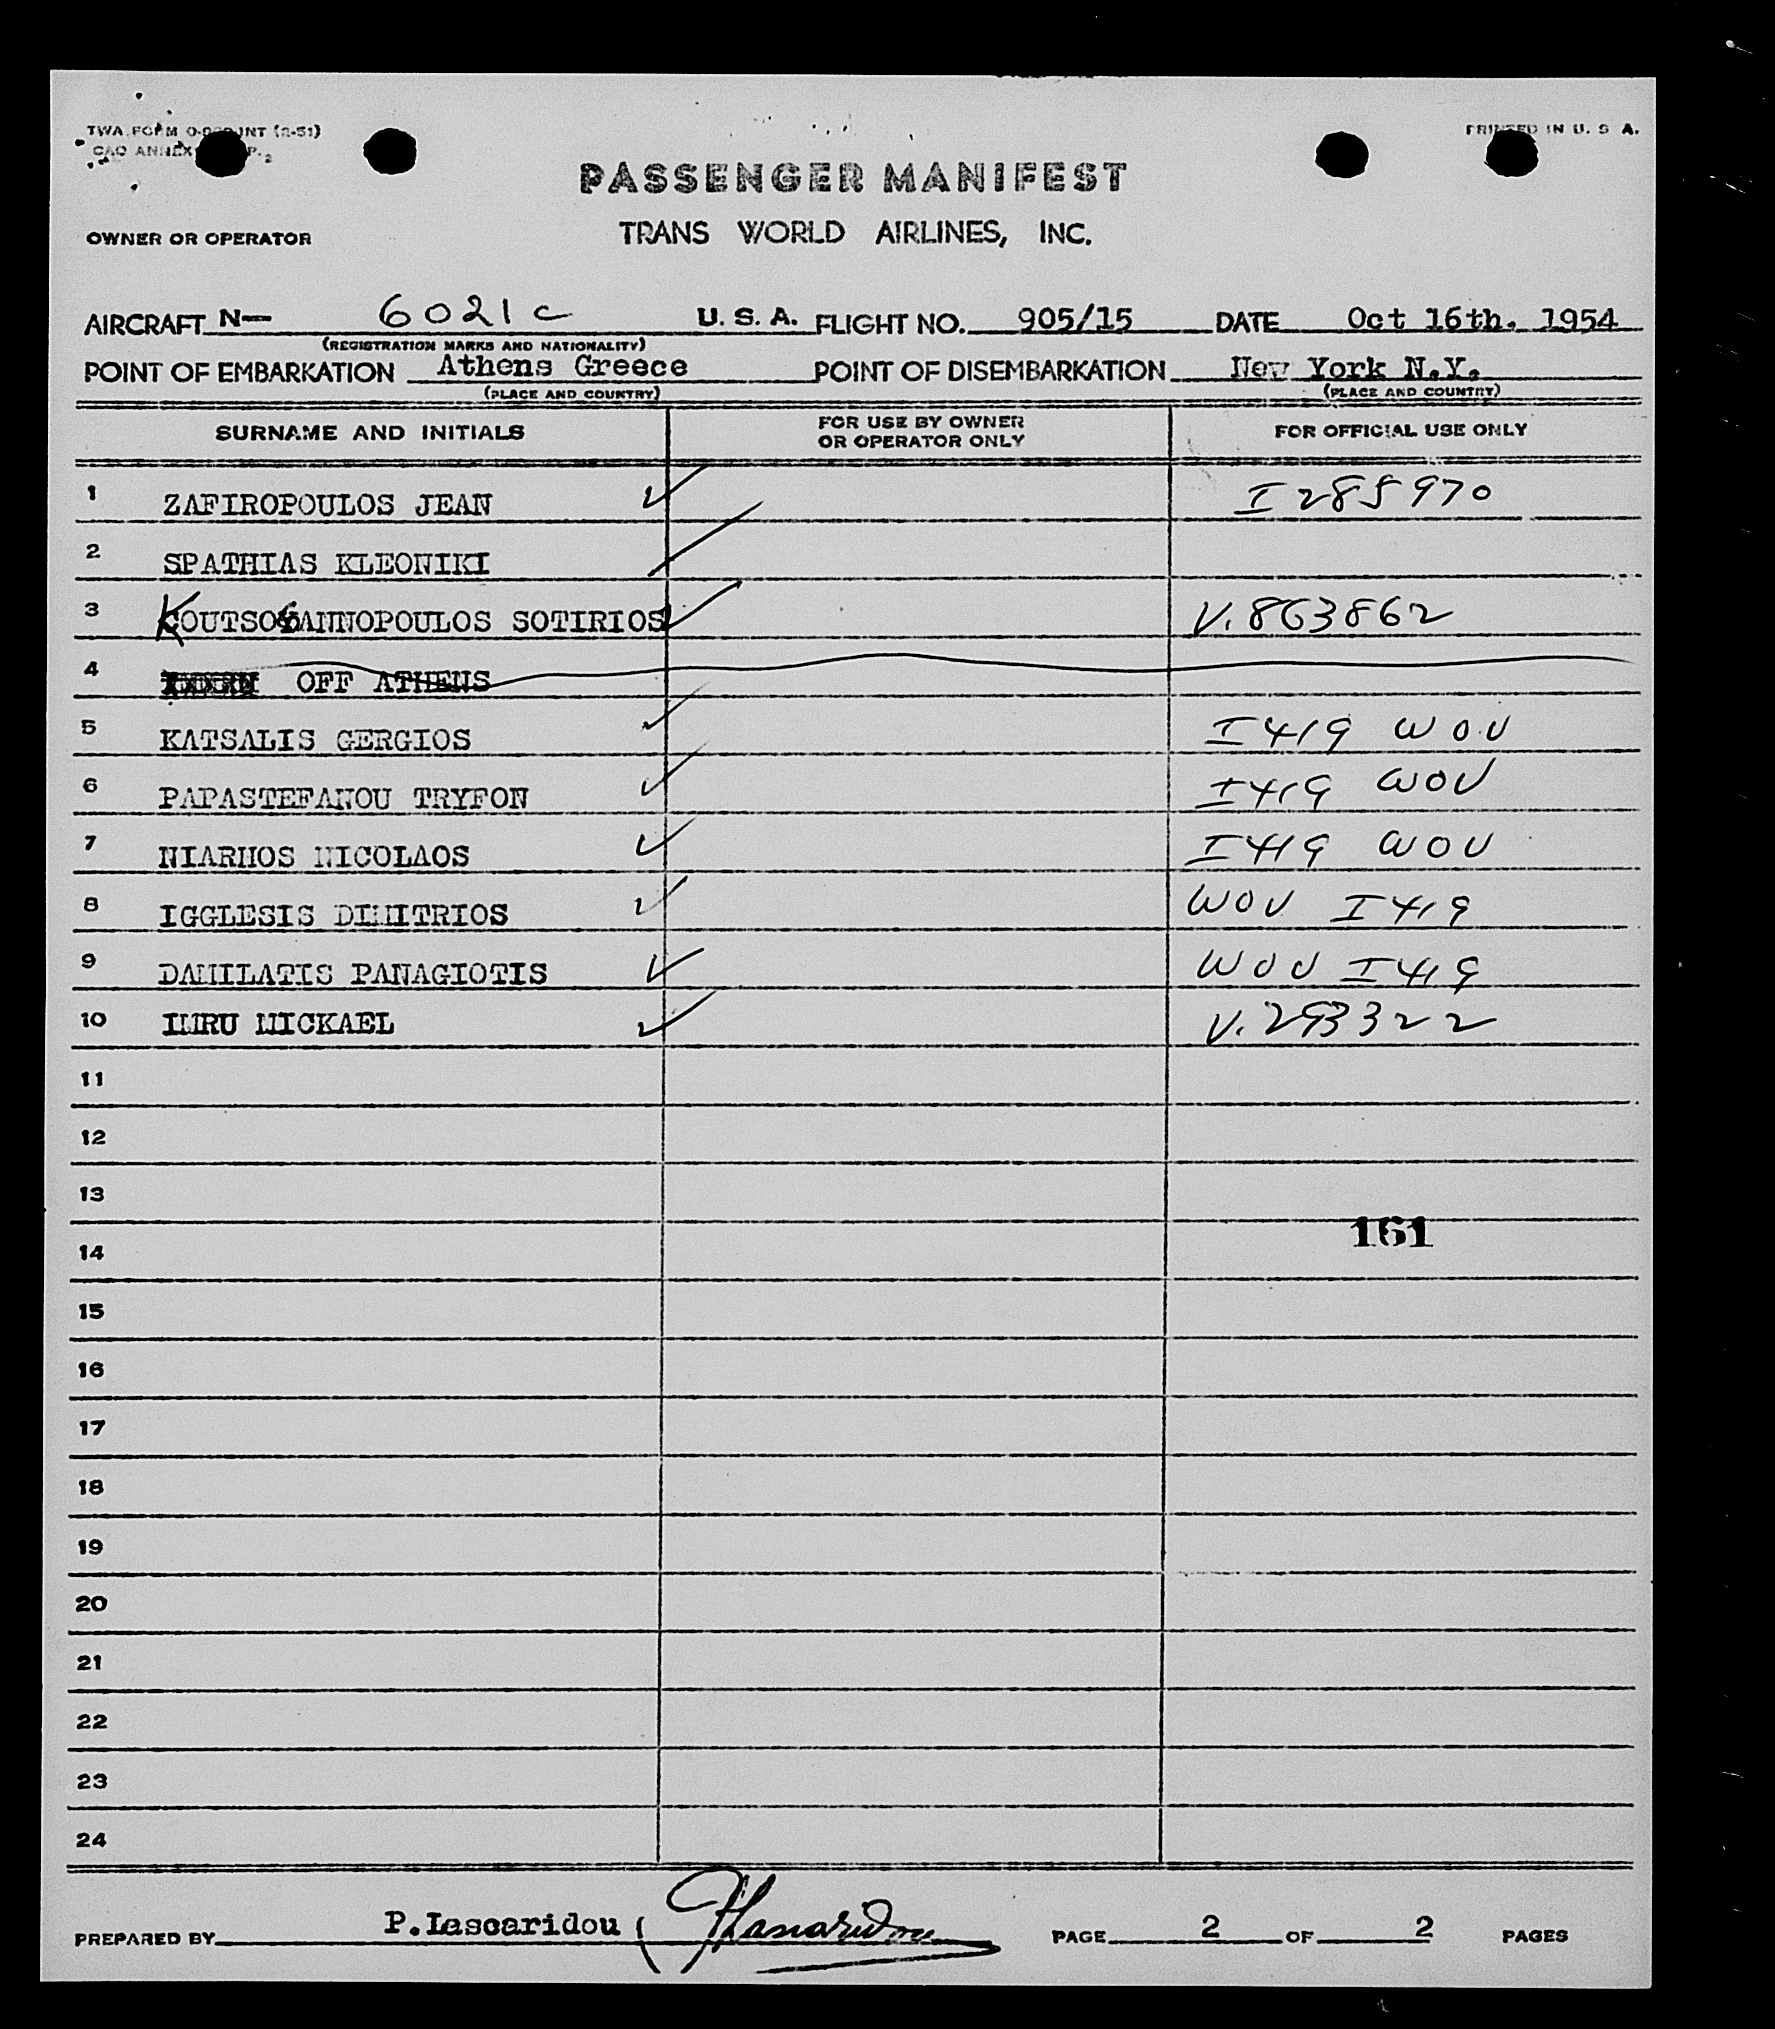 PRINTED IN U. S. A.
PASSENGER MANIFEST
OWNER OR OPERATOR
TRANS WORLD AIRLINES, INC.
AIRCRAFT N— 6021C U. S. A. FLIGHT NO. 905/15 DATE Oct 16th. 1954
(REGISTRATION MARKS AND NATIONALITY)
POINT OF EMBARKATION Athens Greece POINT OF DISEMBARKATION New York N.Y.
(PLACE AND COUNTRY) (PLACE AND COUNTRY)
SURNAME AND INITIALS FOR USE BY OWNER OR OPERATOR ONLY FOR OFFICIAL USE ONLY
1 ZAFIROPOULOS JEAN I 285970
2 SPATHIAS KLEONIKI
3 KOUTSOGIANNOPOULOS SOTIRIOS V. 863862
4 OFF ATHENS
5 KATSALIS GERGIOS I 419 WOV
6 PAPASTEFANOU TRYFON I 419 WOV
7 NIARHOS NICOLAOS I 419 WOV
8 IGGLESIS DIMITRIOS WOV I 419
9 DAMILATIS PANAGIOTIS WOV I 419
10 IMRU MICKAEL V. 293322
11
12
13
161
14
15
16
17
18
19
20
21
22
23
24
PREPARED BY P.Lascaridou PAGE 2 OF 2 PAGES